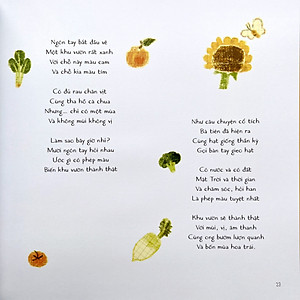 Ngón tay bắt đầu vẽ
Một khu vườn rất xanh
Với chỗ này màu cam
Và chỗ kia màu tím
Có đủ rau chân vịt
Cùng tha hồ cà chua
Nhưng... chỉ có một mùa
Và không mùi không vị
Làm sao bây giờ nhỉ?
Mười ngón tay hỏi nhau
Ước gì có phép màu
Biến khu vườn thành thật
Như câu chuyện cổ tích
Bà tiên đã hiện ra
Cùng hạt giống thần kỳ
Gọi bàn tay gieo hạt
Có nước và có đất
Mặt Trời và thời gian
Và chăm sóc, hỏi han
Là phép màu tuyệt nhất
Khu vườn sẽ thành thật
Với mùi, vị, âm thanh
Cùng ong bướm lượn quanh
Và bốn mùa hoa trái.
23